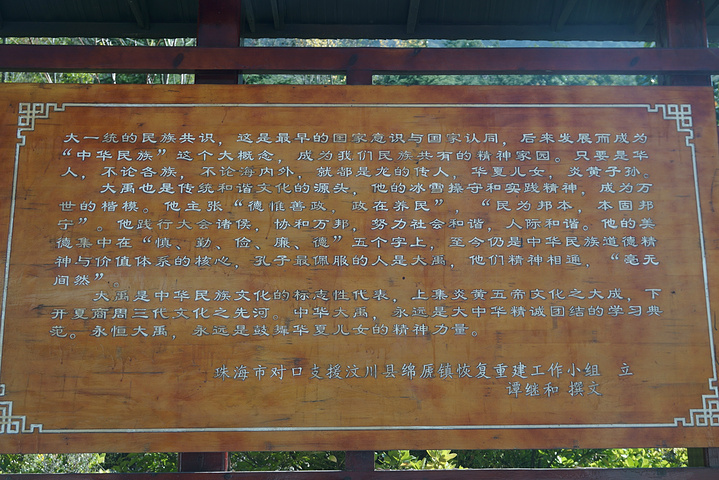 大一统的民族共识，这是最早的国家意识与国家认同，后来发展而成为
“中华民族”这个大概念，成为我们民族共有的精神家园。只要是华
人，不论各族，不论海内外，就都是龙的传人，华夏儿女，炎黄子孙。
大禹也是传统和谐文化的源头，他的冰雪操守和实践精神，成为万
世的楷模。他主张“德惟善政，政在养民”，“民为邦本，本固邦
宁”。他践行大会诸侯，协和万邦，努力社会和谐，人际和谐。他的美
德集中在“慎、勤、俭、廉、德”五个字上，至今仍是中华民族道德精
神与价值体系的核心，孔子最佩服的人是大禹，他们精神相通，“毫无
间然”
大禹是中华民族文化的标志性代表，上集炎黄五帝文化之大成，下
开夏商周三代文化之先河。中华大禹，永远是大中华精诚团结的学习典
范。永恒大禹，永远是鼓舞华夏儿女的精神力量。
珠海市对口支援汶川县绵虒镇恢复重建工作小组 立
谭继和 撰文